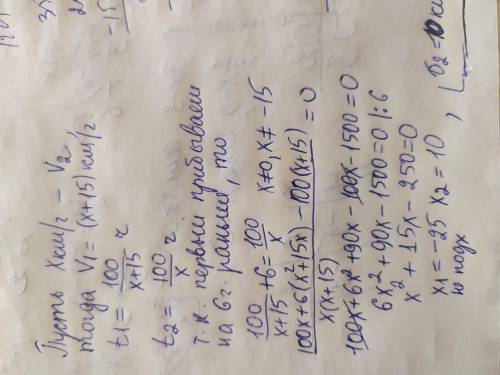 Пусть x км/г - V₂,
тогда V₁ = (x+15) км/г.
t₁ = 100/(x+15) г
t₂ = 100/x г.
т.к. первый прибываем
на 6 г. раньше, то
100/(x+15) + 6 = 100/x x≠0, x≠ -15
(100x + 6(x² + 15x) - 100(x+15))/(x(x+15)) = 0
100x + 6x² + 90x - 100x - 1500 = 0
6x² + 90x - 1500 = 0 |: 6
x² + 15x - 250 = 0
x₁ = -25 x₂ = 10,
не подх
υ₂ = 10 км